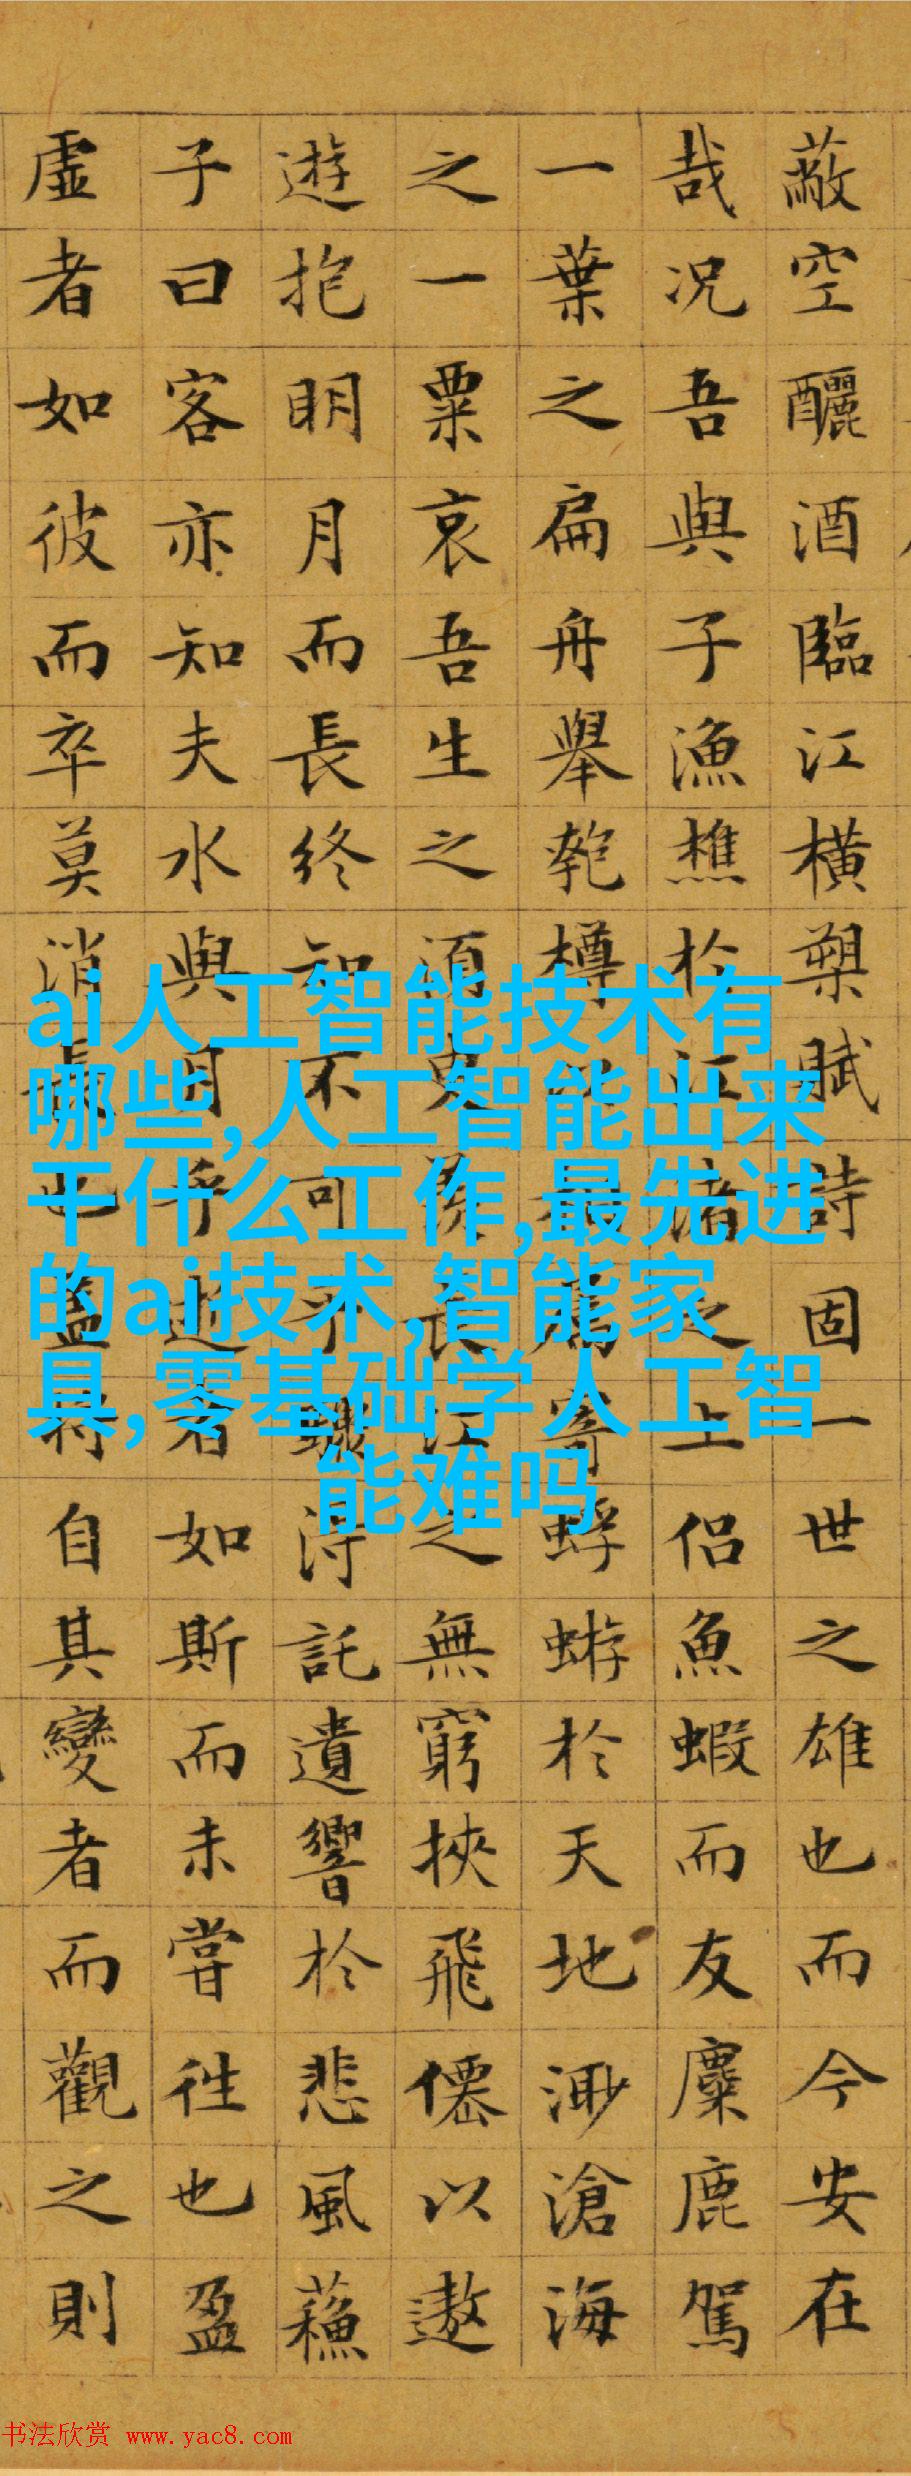 蔽空釃酒臨江橫槊賦詩固一世之雄也而今安在
哉况吾與子漁樵於江渚之上侶魚蝦而友麋鹿駕
一葉之扁舟舉匏樽以相屬寄蜉蝣於天地渺滄海
之一粟哀吾生之須臾羨長江之無窮挾飛僊以遨
遊抱明月而長終知不可乎驟得託遺響於悲風蘓
子曰客亦知夫水與月乎逝者如斯而未嘗往也盈
虛者如彼而卒莫消長也蓋將自其變者而觀之則
ai人工智能技术有
哪些,人工智能出来
干什么工作,最先进
的ai技术,智能家
具,零基础学人工智
能难吗
书法欣赏 www.yac8.com